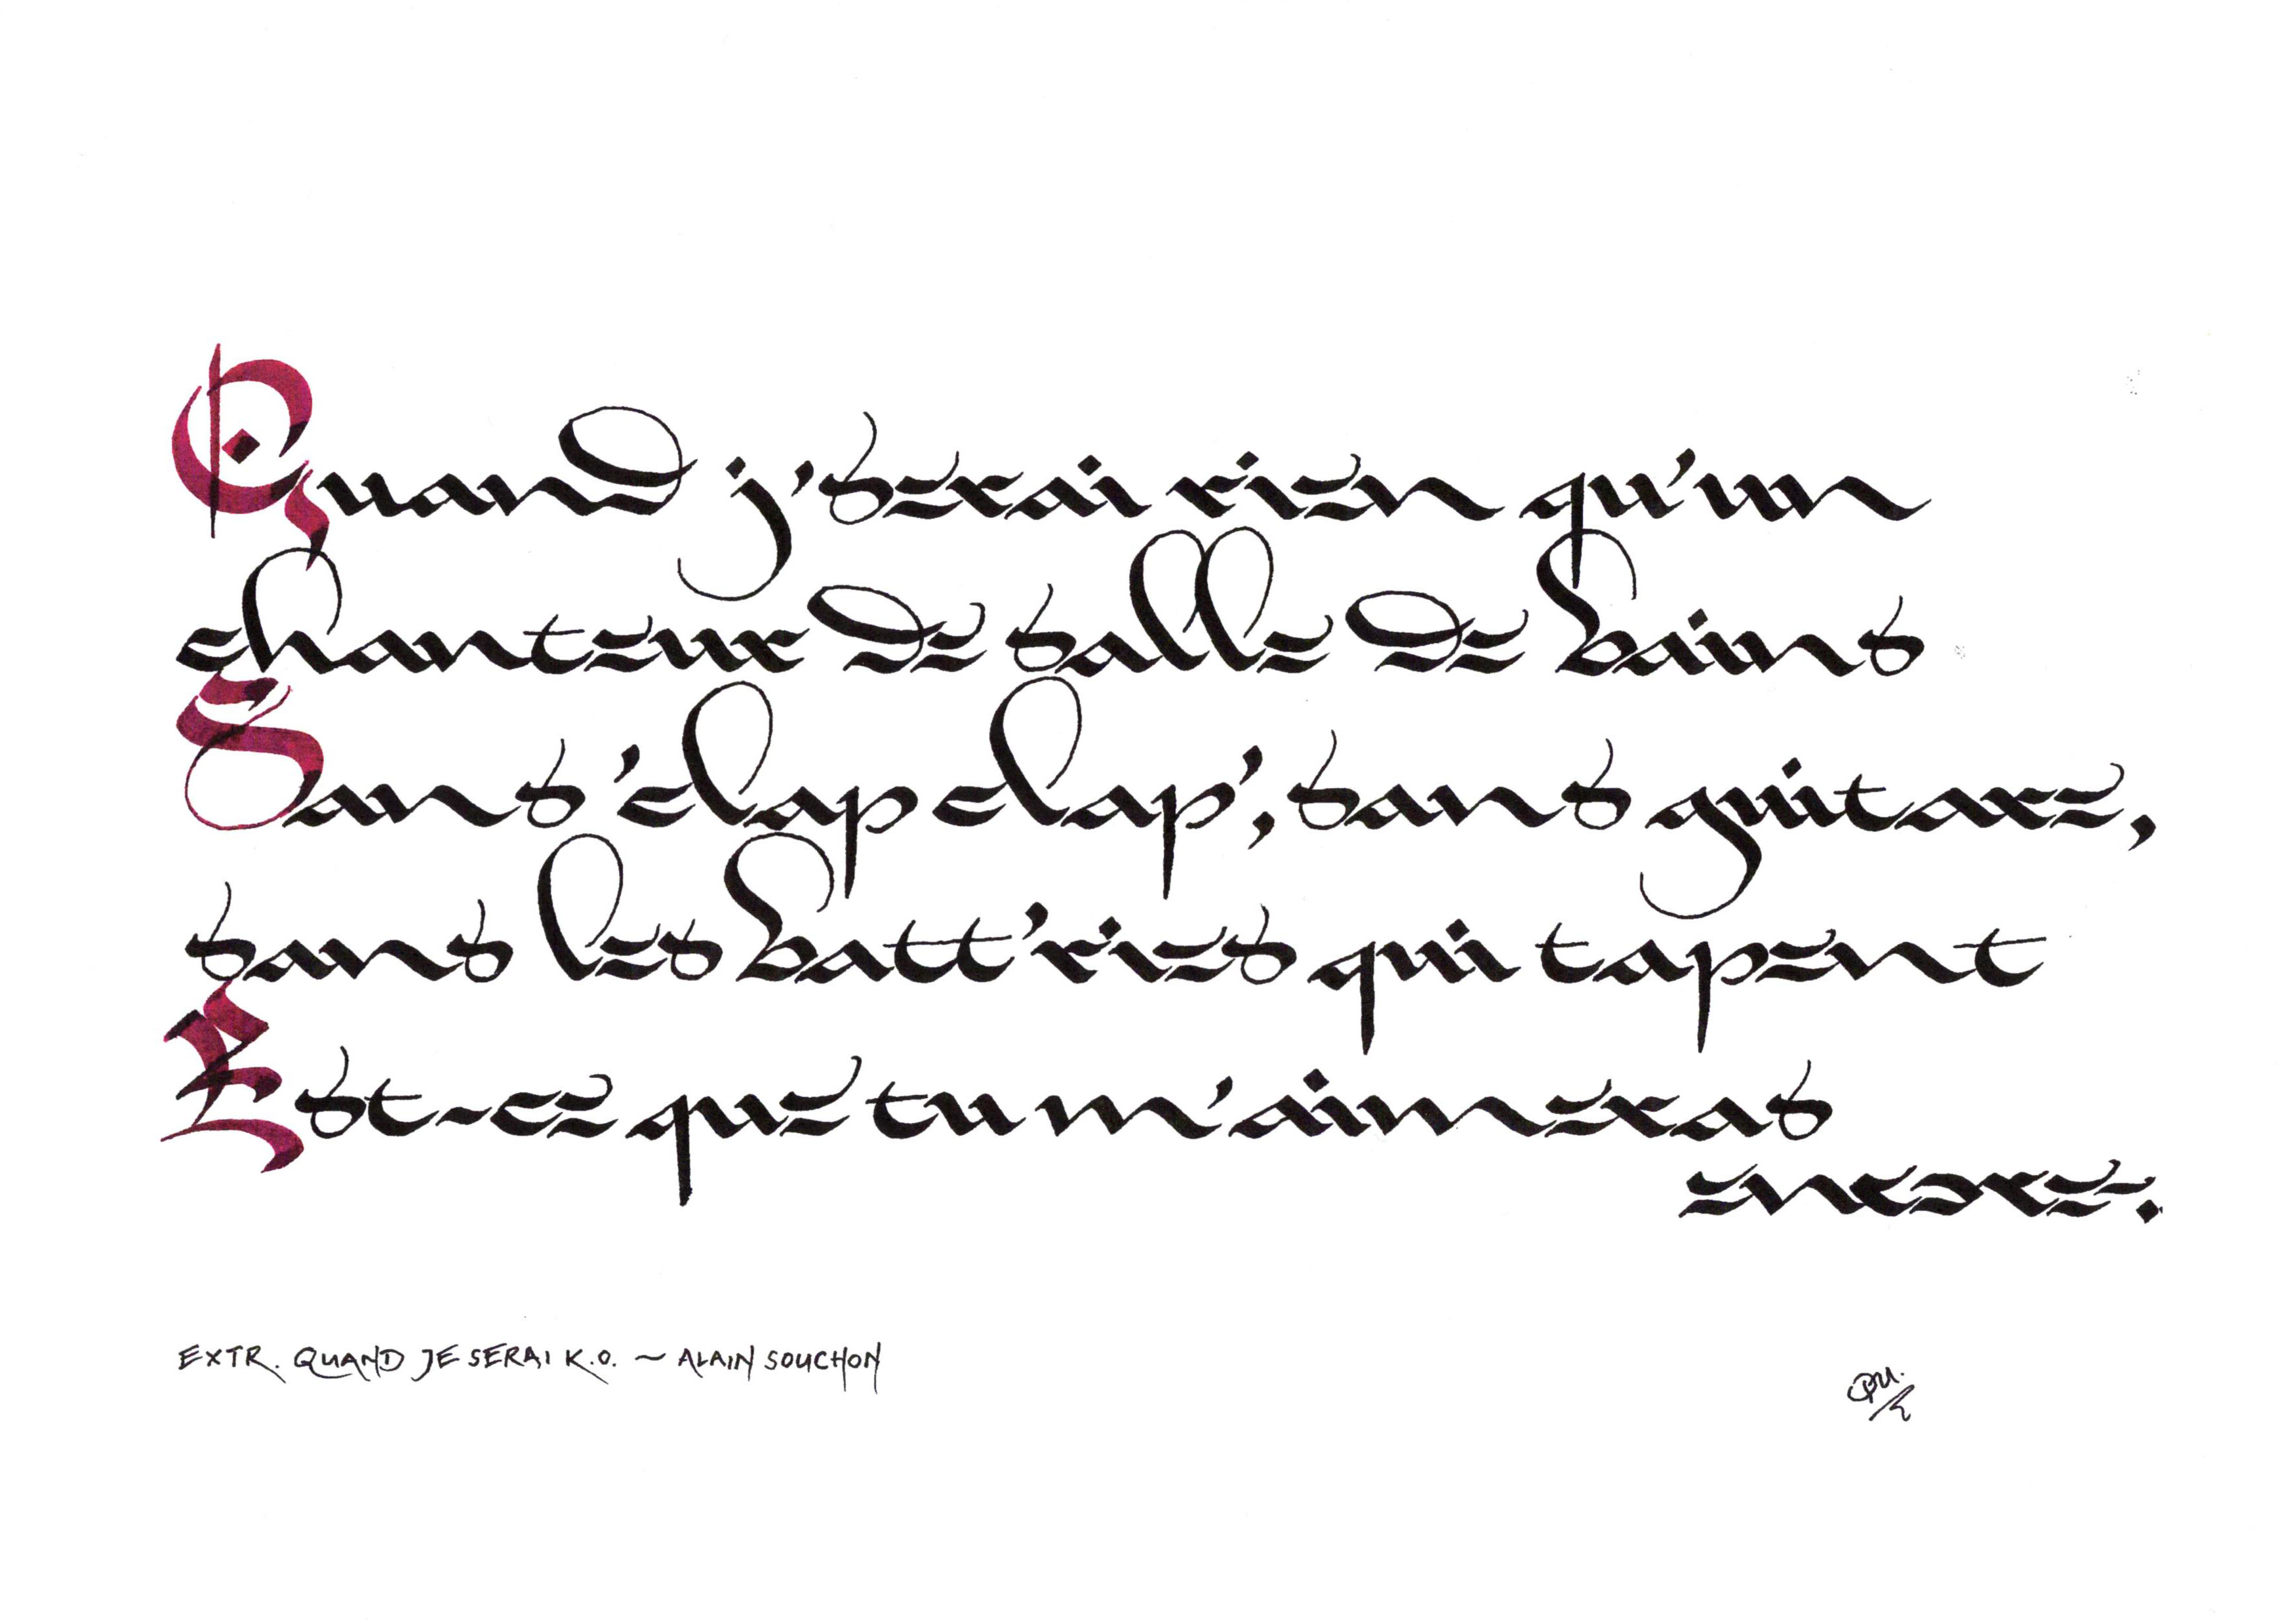 Quand j'serai rien qu'un
chanteur de salle de bains
Sans 'clap clap', sans guitare,
sans les batt'ries qui tapent
Est-ce que tu m'aimeras
encore?
EXTR. QUAND JE SERAI K.O. ~ ALAIN SOUCHON